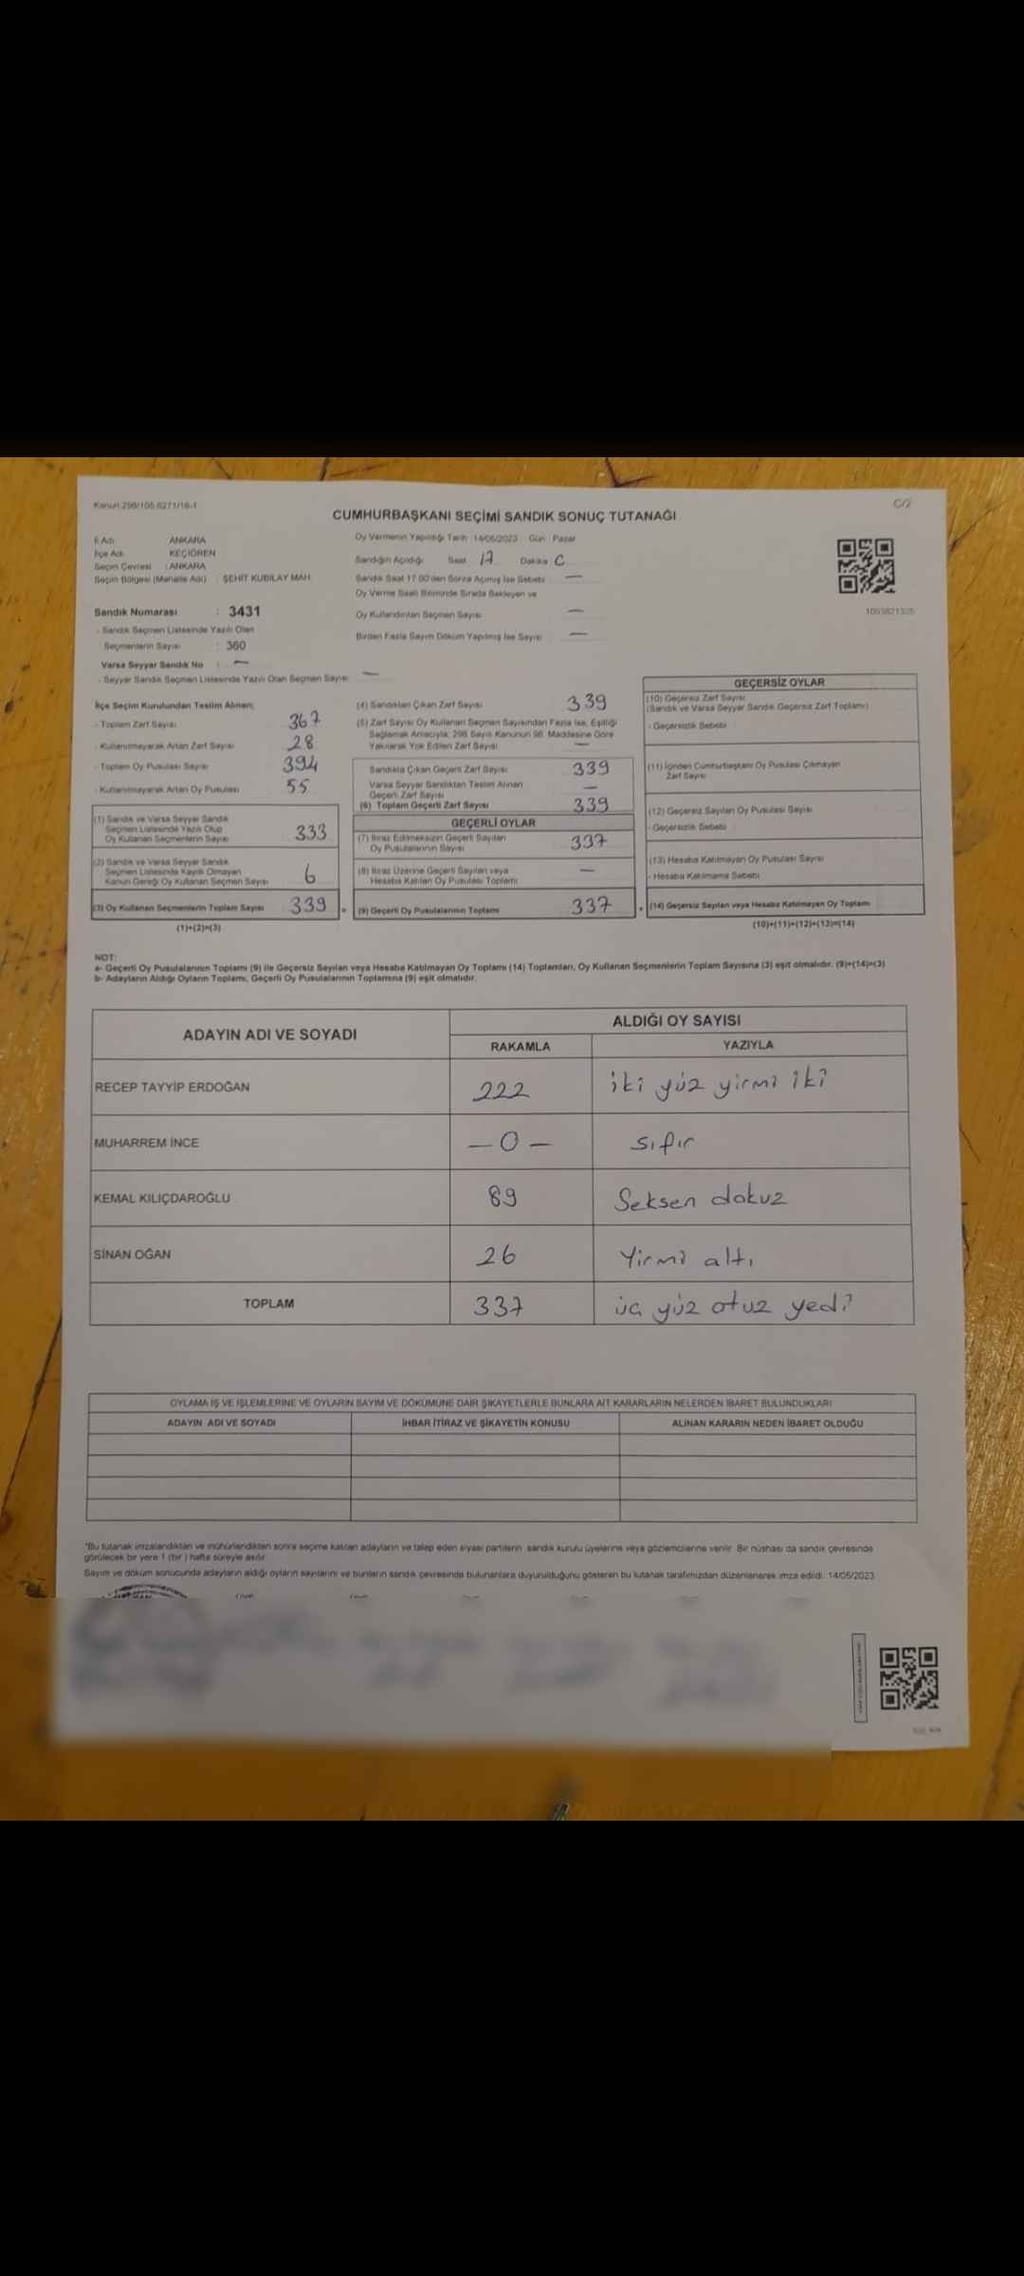 Kanun:298/105.6271/16-1
C/2
CUMHURBAŞKANI SEÇİMİ SANDIK SONUÇ TUTANAĞI
İl Adı ANKARA
İlçe Adı KEÇİÖREN
Seçim Çevresi : ANKARA
Seçim Bölgesi (Mahalle Adı) : ŞEHİT KUBİLAY MAH
Oy Vermenin Yapıldığı Tarih : 14/05/2023 Gün : Pazar
Sandığın Açıldığı Saat 17 Dakika
Sandık Saat 17.00'den Sonra Açılmış İse Sebebi —
Oy Verme Saati Bitiminde Sırada Bekleyen ve
Oy Kullandırılan Seçmen Sayısı —
Birden Fazla Sayım Döküm Yapılmış İse Sayısı —
1003821325
Sandık Numarası : 3431
- Sandık Seçmen Listesinde Yazılı Olan
Seçmenlerin Sayısı : 360
Varsa Seyyar Sandık No : —
- Seyyar Sandık Seçmen Listesinde Yazılı Olan Seçmen Sayısı: —
İlçe Seçim Kurulundan Teslim Alınan;
- Toplam Zarf Sayısı 367
- Kullanılmayarak Artan Zarf Sayısı 28
- Toplam Oy Pusulası Sayısı 394
- Kullanılmayarak Artan Oy Pusulası 55
(1) Sandık ve Varsa Seyyar Sandık
Seçmen Listesinde Yazılı Olup
Oy Kullanan Seçmenlerin Sayısı 333
(2) Sandık ve Varsa Seyyar Sandık
Seçmen Listesinde Kayıtlı Olmayan
Kanun Gereği Oy Kullanan Seçmen Sayısı 6
(3) Oy Kullanan Seçmenlerin Toplam Sayısı 339
(1)+(2)=(3)
(4) Sandıktan Çıkan Zarf Sayısı 339
(5) Zarf Sayısı Oy Kullanan Seçmen Sayısından Fazla İse, Eşitliği
Sağlamak Amacıyla; 298 Sayılı Kanunun 98. Maddesine Göre
Yakılarak Yok Edilen Zarf Sayısı —
Sandıkta Çıkan Geçerli Zarf Sayısı 339
Varsa Seyyar Sandıktan Teslim Alınan
Geçerli Zarf Sayısı —
(6) Toplam Geçerli Zarf Sayısı 339
GEÇERLİ OYLAR
(7) İtiraz Edilmeksizin Geçerli Sayılan
Oy Pusulalarının Sayısı 337
(8) İtiraz Üzerine Geçerli Sayılan veya
Hesaba Katılan Oy Pusulası Toplamı —
(9) Geçerli Oy Pusulalarının Toplamı 337
GEÇERSİZ OYLAR
(10) Geçersiz Zarf Sayısı
(Sandık ve Varsa Seyyar Sandık Geçersiz Zarf Toplamı)
- Geçersizlik Sebebi
(11) İçinden Cumhurbaşkanı Oy Pusulası Çıkmayan
Zarf Sayısı
(12) Geçersiz Sayılan Oy Pusulası Sayısı
- Geçersizlik Sebebi
(13) Hesaba Katılmayan Oy Pusulası Sayısı
- Hesaba Katılmama Sebebi
(14) Geçersiz Sayılan veya Hesaba Katılmayan Oy Toplamı
(10)+(11)+(12)+(13)=(14)
NOT:
a- Geçerli Oy Pusulalarının Toplamı (9) ile Geçersiz Sayılan veya Hesaba Katılmayan Oy Toplamı (14) Toplamları, Oy Kullanan Seçmenlerin Toplam Sayısına (3) eşit olmalıdır. (9)+(14)=(3)
b- Adayların Aldığı Oyların Toplamı, Geçerli Oy Pusulalarının Toplamına (9) eşit olmalıdır.
ADAYIN ADI VE SOYADI ALDIĞI OY SAYISI
RAKAMLA YAZIYLA
RECEP TAYYİP ERDOĞAN 222 iki yüz yirmi iki
MUHARREM İNCE — 0 — sıfır
KEMAL KILIÇDAROĞLU 89 Seksen dokuz
SİNAN OĞAN 26 Yirmi altı
TOPLAM 337 üç yüz otuz yedi
OYLAMA İŞ VE İŞLEMLERİNE VE OYLARIN SAYIM VE DÖKÜMÜNE DAİR ŞİKAYETLERLE BUNLARA AİT KARARLARIN NELERDEN İBARET BULUNDUKLARI
ADAYIN ADI VE SOYADI İHBAR İTİRAZ VE ŞİKAYETİN KONUSU ALINAN KARARIN NEDEN İBARET OLDUĞU
*Bu tutanak imzalandıktan ve mühürlendikten sonra seçime katılan adayların ve talep eden siyasi partilerin, sandık kurulu üyelerine veya gözlemcilerine verilir. Bir nüshası da sandık çevresinde
görülecek bir yere 1 (bir) hafta süreyle asılır.
Sayım ve döküm sonucunda adayların aldığı oyların sayılarını ve bunların sandık çevresinde bulunanlara duyurulduğunu gösteren bu tutanak tarafımızdan düzenlenerek imza edildi. 14/05/2023